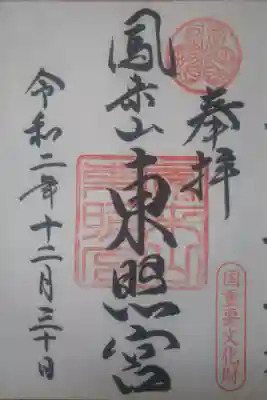 奉拝
国重要文化財
鳳来山東照宮
令和二年十二月三十日